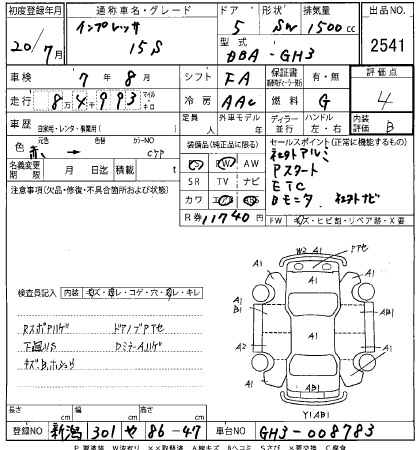 初度登録年月 通称車名・グレード ドア 形状 排気量 出品NO.
20/7月 インプレッサ 15S 5 SW 1500cc 2541
型式 DBA-GH3
車検 7年8月 シフト FA 保証書 有・無 評価点
走行 84993 マイル キロ 冷房 AAC 燃料 G 4
車歴 自家用・レンタ・事業用( ) 定員 人 外車モデル 年 ディーラー 並行 ハンドル 左・右 内装評価 B
色 元色 赤 → 色替 カラーNO
名義変更期限 月 日迄 積載 t
装備品(純正品に限る)
PS PW AW
SR TV ナビ
カワ エアB ABS
R券 11740円
セールスポイント(正常に機能するもの)
社外アルミ
Pスタート
ETC
Bモニタ 社外ナビ
FW キズ・ヒビ割・リペア跡・X要
注意事項(欠品・修復・不具合箇所および状態)
検査員記入 内装 キズ・擦レ・コゲ・穴・汚レ・キレ
RスポAハゲ ドアノブアセ
下廻りS DミラーAハゲ
W2 A1 アセ
A1 A1
A1 B1 A1 AB1
A2 A1
A1 A1
AB1
Y1AB1
長さ cm 幅 cm 高さ cm
登録NO 新潟 301 や 86-47 車台NO GH3-008783